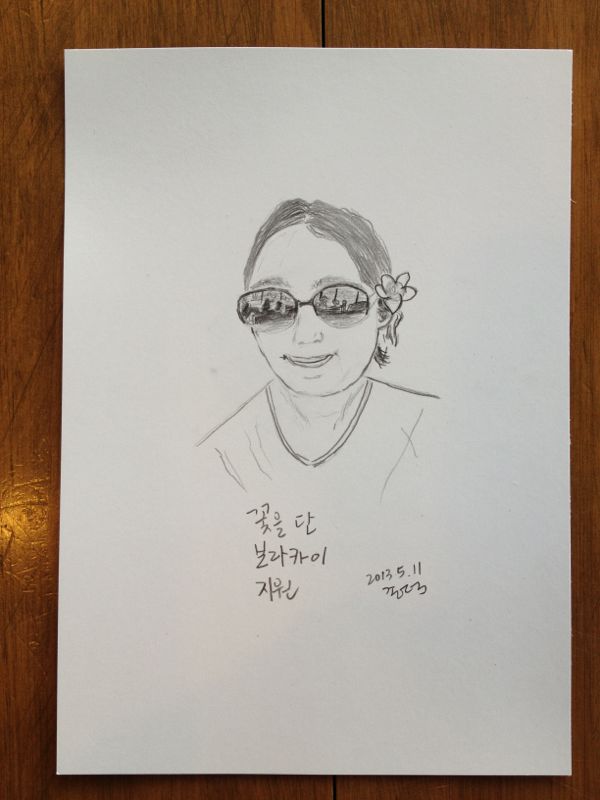 꽃을 단
보라카이
지원
2013.5.11